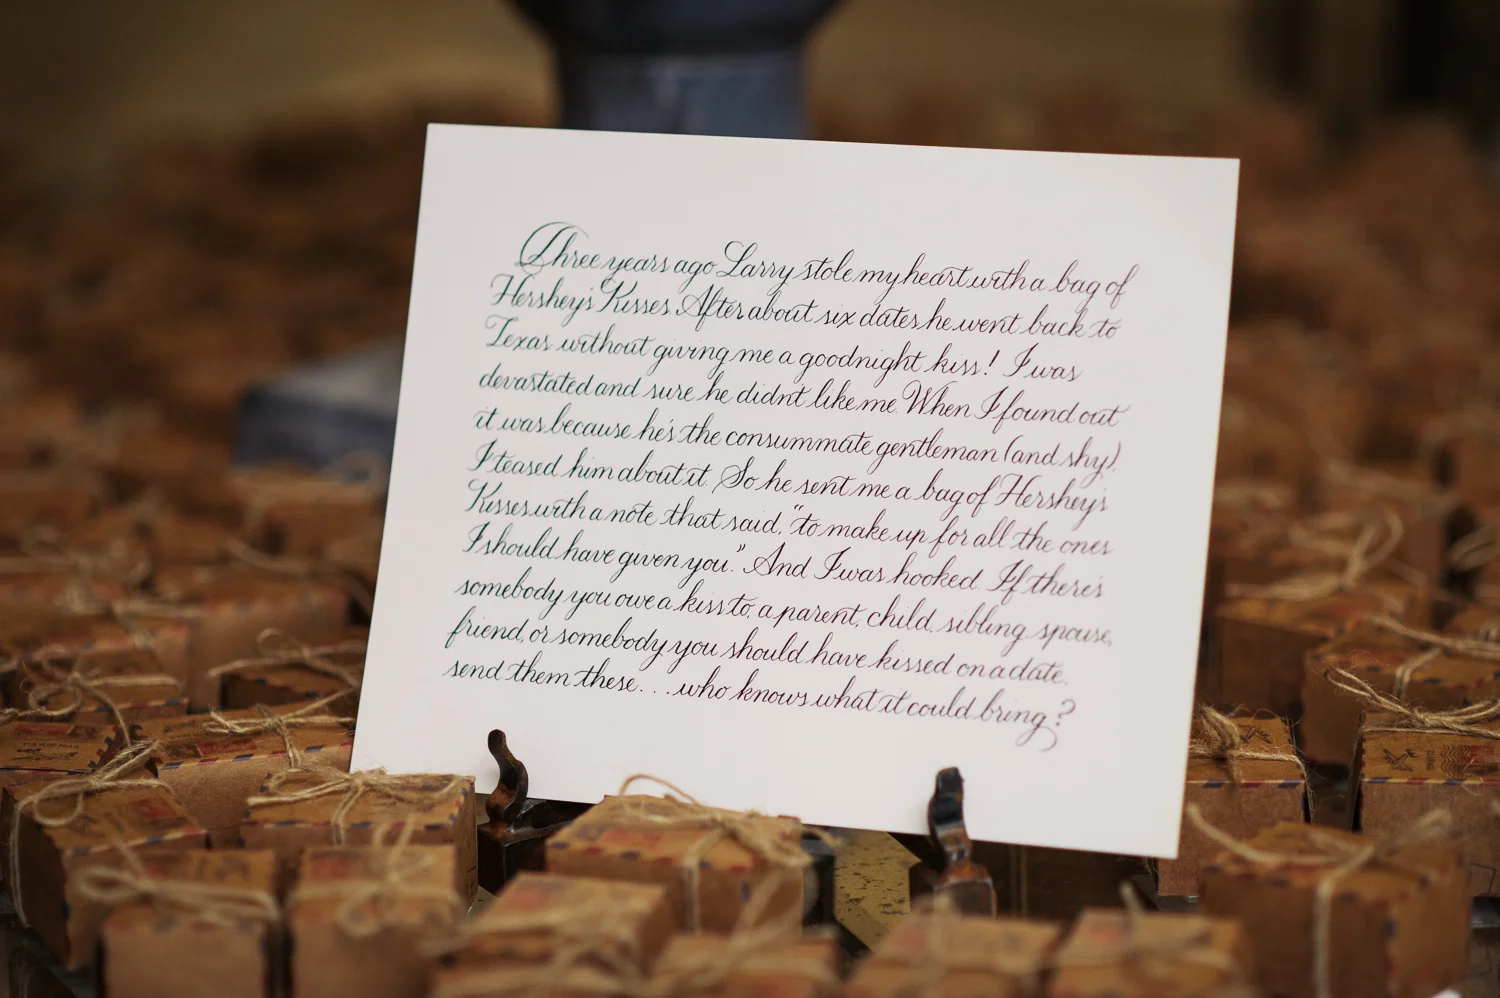 Three years ago Larry stole my heart with a bag of
Hershey's Kisses. After about six dates he went back to
Texas without giving me a goodnight kiss! I was
devastated and sure he didn't like me. When I found out
it was because he's the consummate gentleman (and shy),
I teased him about it. So he sent me a bag of Hershey's
Kisses with a note that said, "to make up for all the ones
I should have given you." And I was hooked. If there's
somebody you owe a kiss to, a parent, child, sibling, spouse,
friend, or somebody you should have kissed on a date,
send them these...who knows what it could bring?